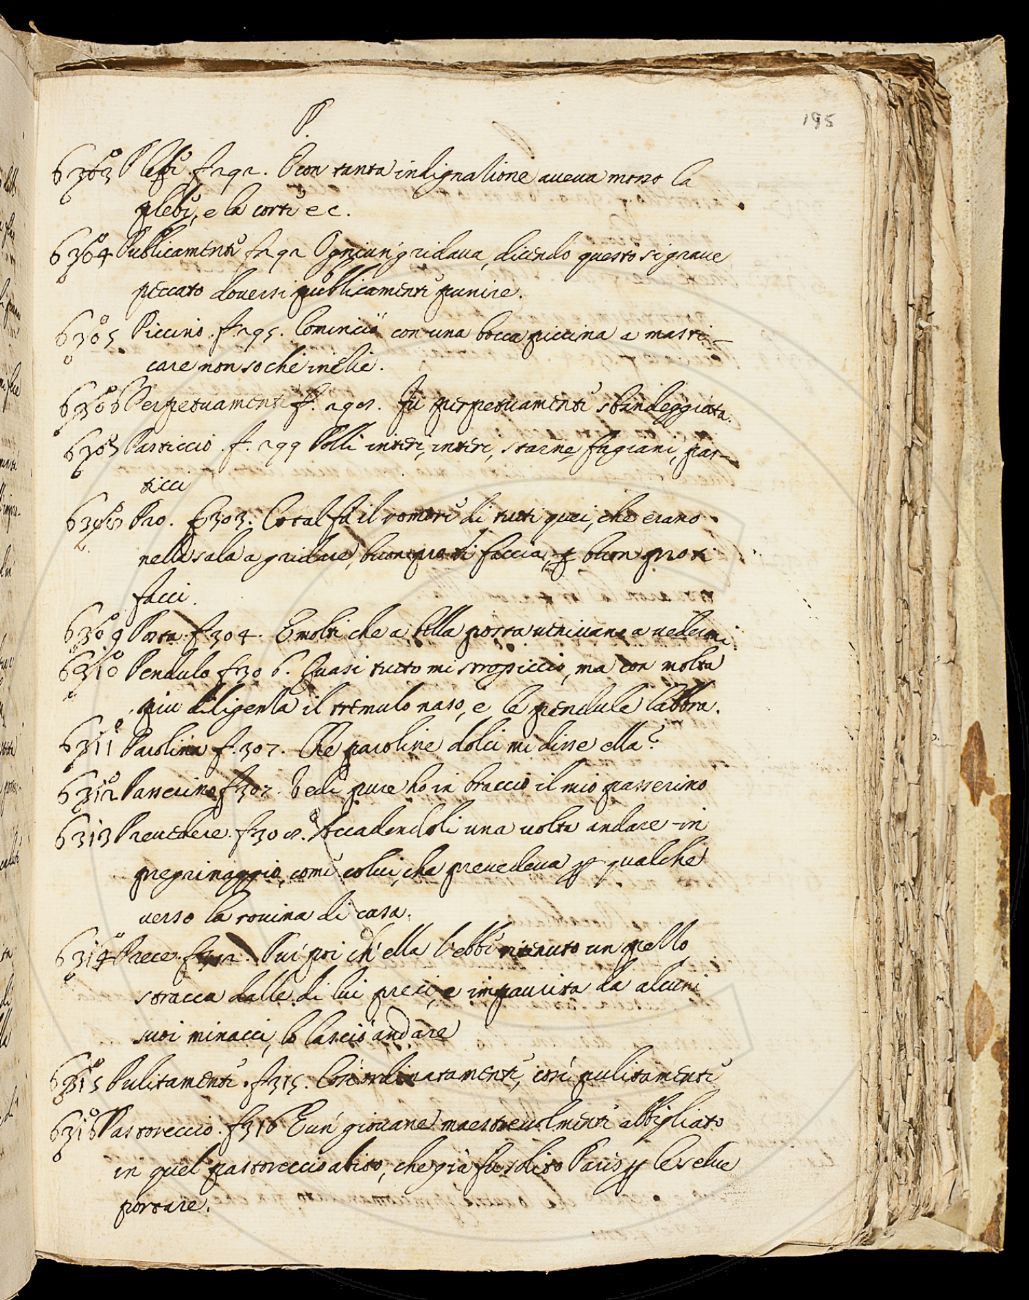 P.
195
6303 Plebe f. 292. E con tanta indignazione aveva mosso la
plebe, e la corte ec.
6304 Publicamente f. 292 Ogniun gridava, dicendo questo si grave
peccato doversi publicamente punire.
6305 Piccino. f. 295. Cominciò con una bocca piccina a masti-
care non so che inezie.
6306 Perpetuamente f. Fù perpetuamente sbandeggiata.
Pasticcio. f. 299 Polli interi, interi, starne, fagiani, pas-
ticci
Pro. f. 303. Cotal fù il romore di tutti quei, che erano
nella sala a gridare, buon pro ti faccia, e buon pro ti
facci.
6309 Porta. f. 304. E molti che a bella porta venivano a vedermi
6310 Pendulo f. 306. Quasi tutto mi stropicciò, ma con molta
piu diligenza il tremulo naso, e le pendule labbra.
6311 Parolina f. 307. Che paroline dolci mi disse ella?
6312 Passerino f. 307. Vedi pure ho in braccio il mio passerino
6313 Prevedere. f. 308. Accadendoli una volta andare in
pregrinaggio, come colui, che prevedeva qualche
verso la rovina di casa.
6314 Prece. f. 312. Pui poi ch' ella l'ebbe ritenuto un pezzo,
stracca dalle di lui preci, e impaurita da alcuni
suoi minacci, lo lasciò andare
6315 Pulitamente. f. 315. Cosi ordinatamente, cosi pulitamente
6316 Pastoreccio. f. 316 E un giovane maestrevolmente abbigliato
in quel pastoreccio abito, che già fù solito Paris le selve
portare.